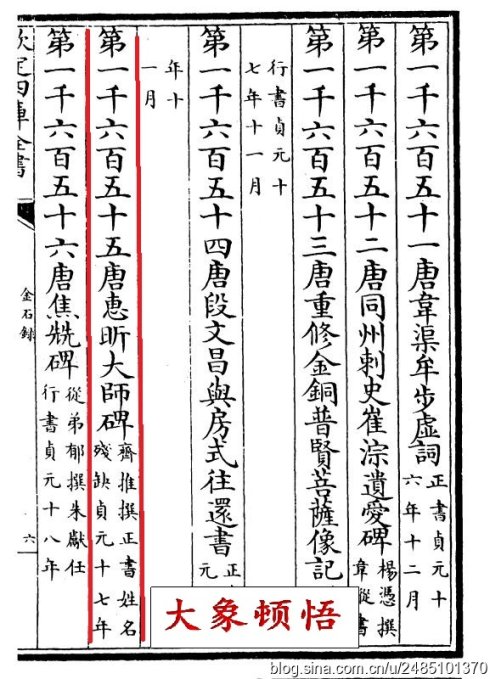 第一千六百五十一唐韋渠牟步虛詞
正書貞元十
六年十二月
第一千六百五十二唐同州刺史崔淙遺愛碑
楊憑撰
韋從書
第一千六百五十三唐重修金銅普賢菩薩像記
行書貞元十
七年十一月
第一千六百五十四唐段文昌與房式往還書
正
元
年十
一月
第一千六百五十五唐惠昕大師碑
齊推撰正書姓名
殘缺貞元十七年
第一千六百五十六唐焦兟碑
從弟郁撰朱獻任
行書貞元十八年
欽定四庫全書
金石録
六
大象顿悟
blog.sina.com.cn/u/2485101370